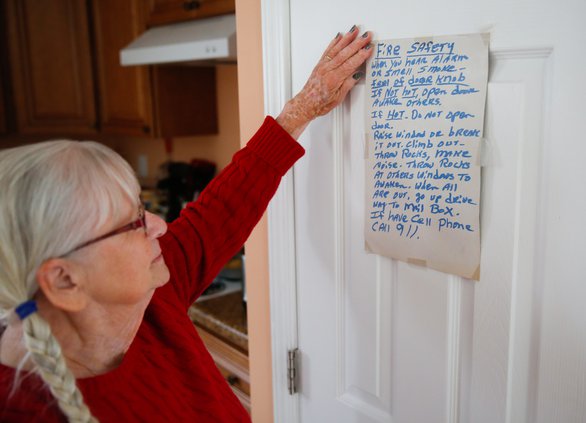 FIRE SAFETY
WHEN YOU HEAR ALARM
OR SMELL SMOKE -
FEEL OF DOOR KNOB
IF NOT HOT, OPEN DOOR
AWAKE OTHERS.
IF HOT. DO NOT OPEN
DOOR.
RAISE WINDOW OR BREAK
IT OUT. CLIMB OUT -
THROW ROCKS, MAKE
NOISE. THROW ROCKS
AT OTHERS WINDOWS TO
AWAKEN. WHEN ALL
ARE OUT, GO UP DRIVE
WAY TO MAIL BOX.
IF HAVE CELL PHONE
CALL 911.